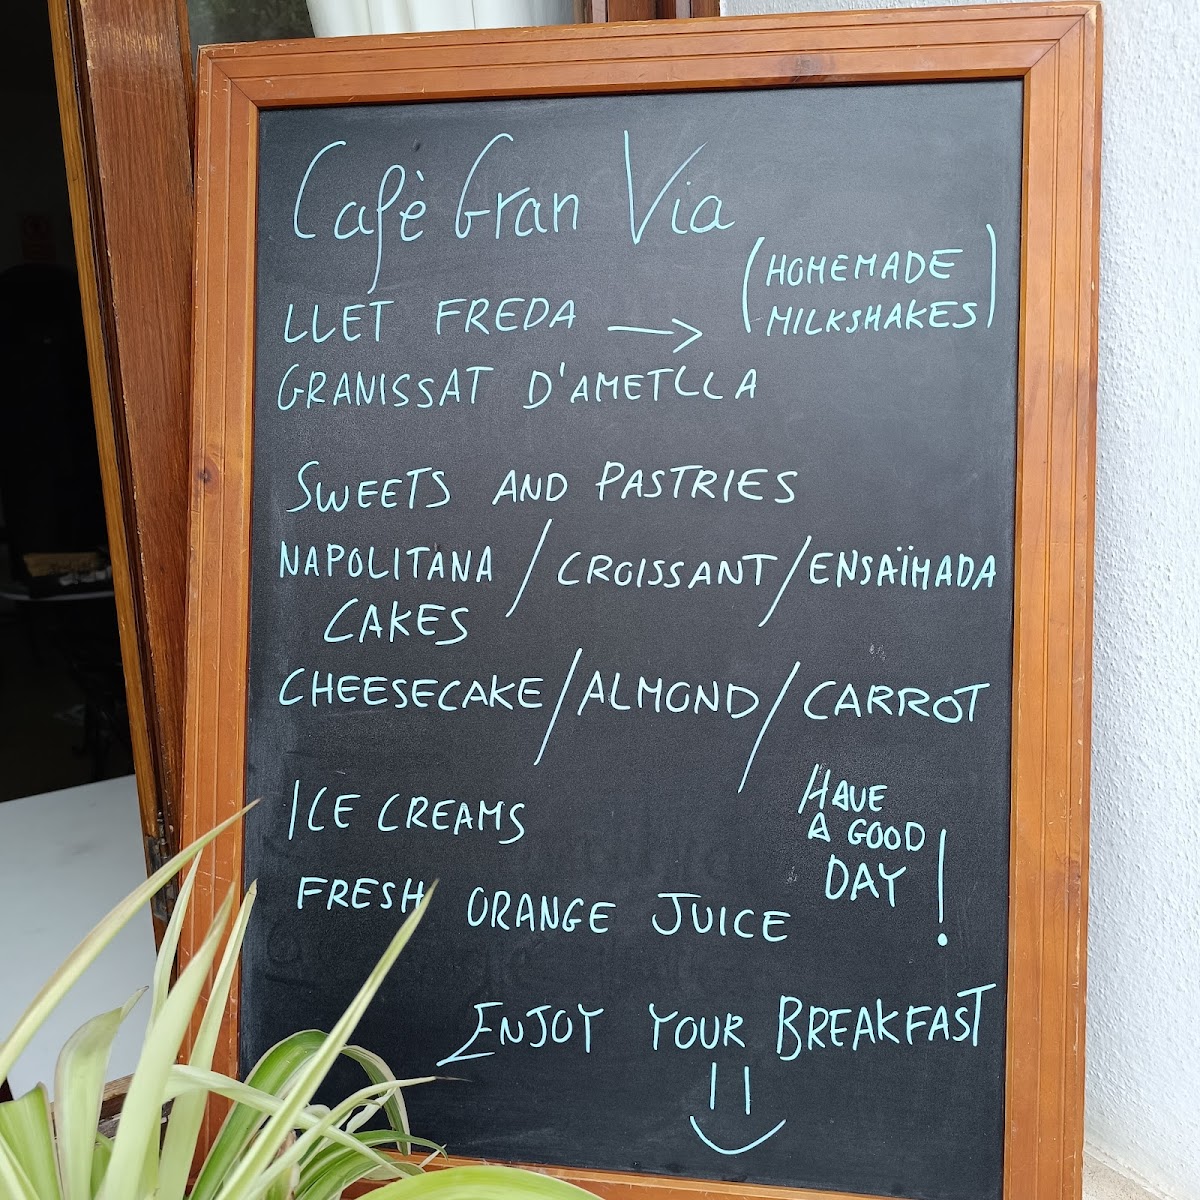 Cafè Gran Via
LLET FREDA → (HOMEMADE
MILKSHAKES)
GRANISSAT D'AMETLLA
SWEETS AND PASTRIES
NAPOLITANA / CROISSANT / ENSAÏMADA
CAKES
CHEESECAKE / ALMOND / CARROT
ICE CREAMS
HAVE
A GOOD
DAY !
FRESH ORANGE JUICE
ENJOY YOUR BREAKFAST